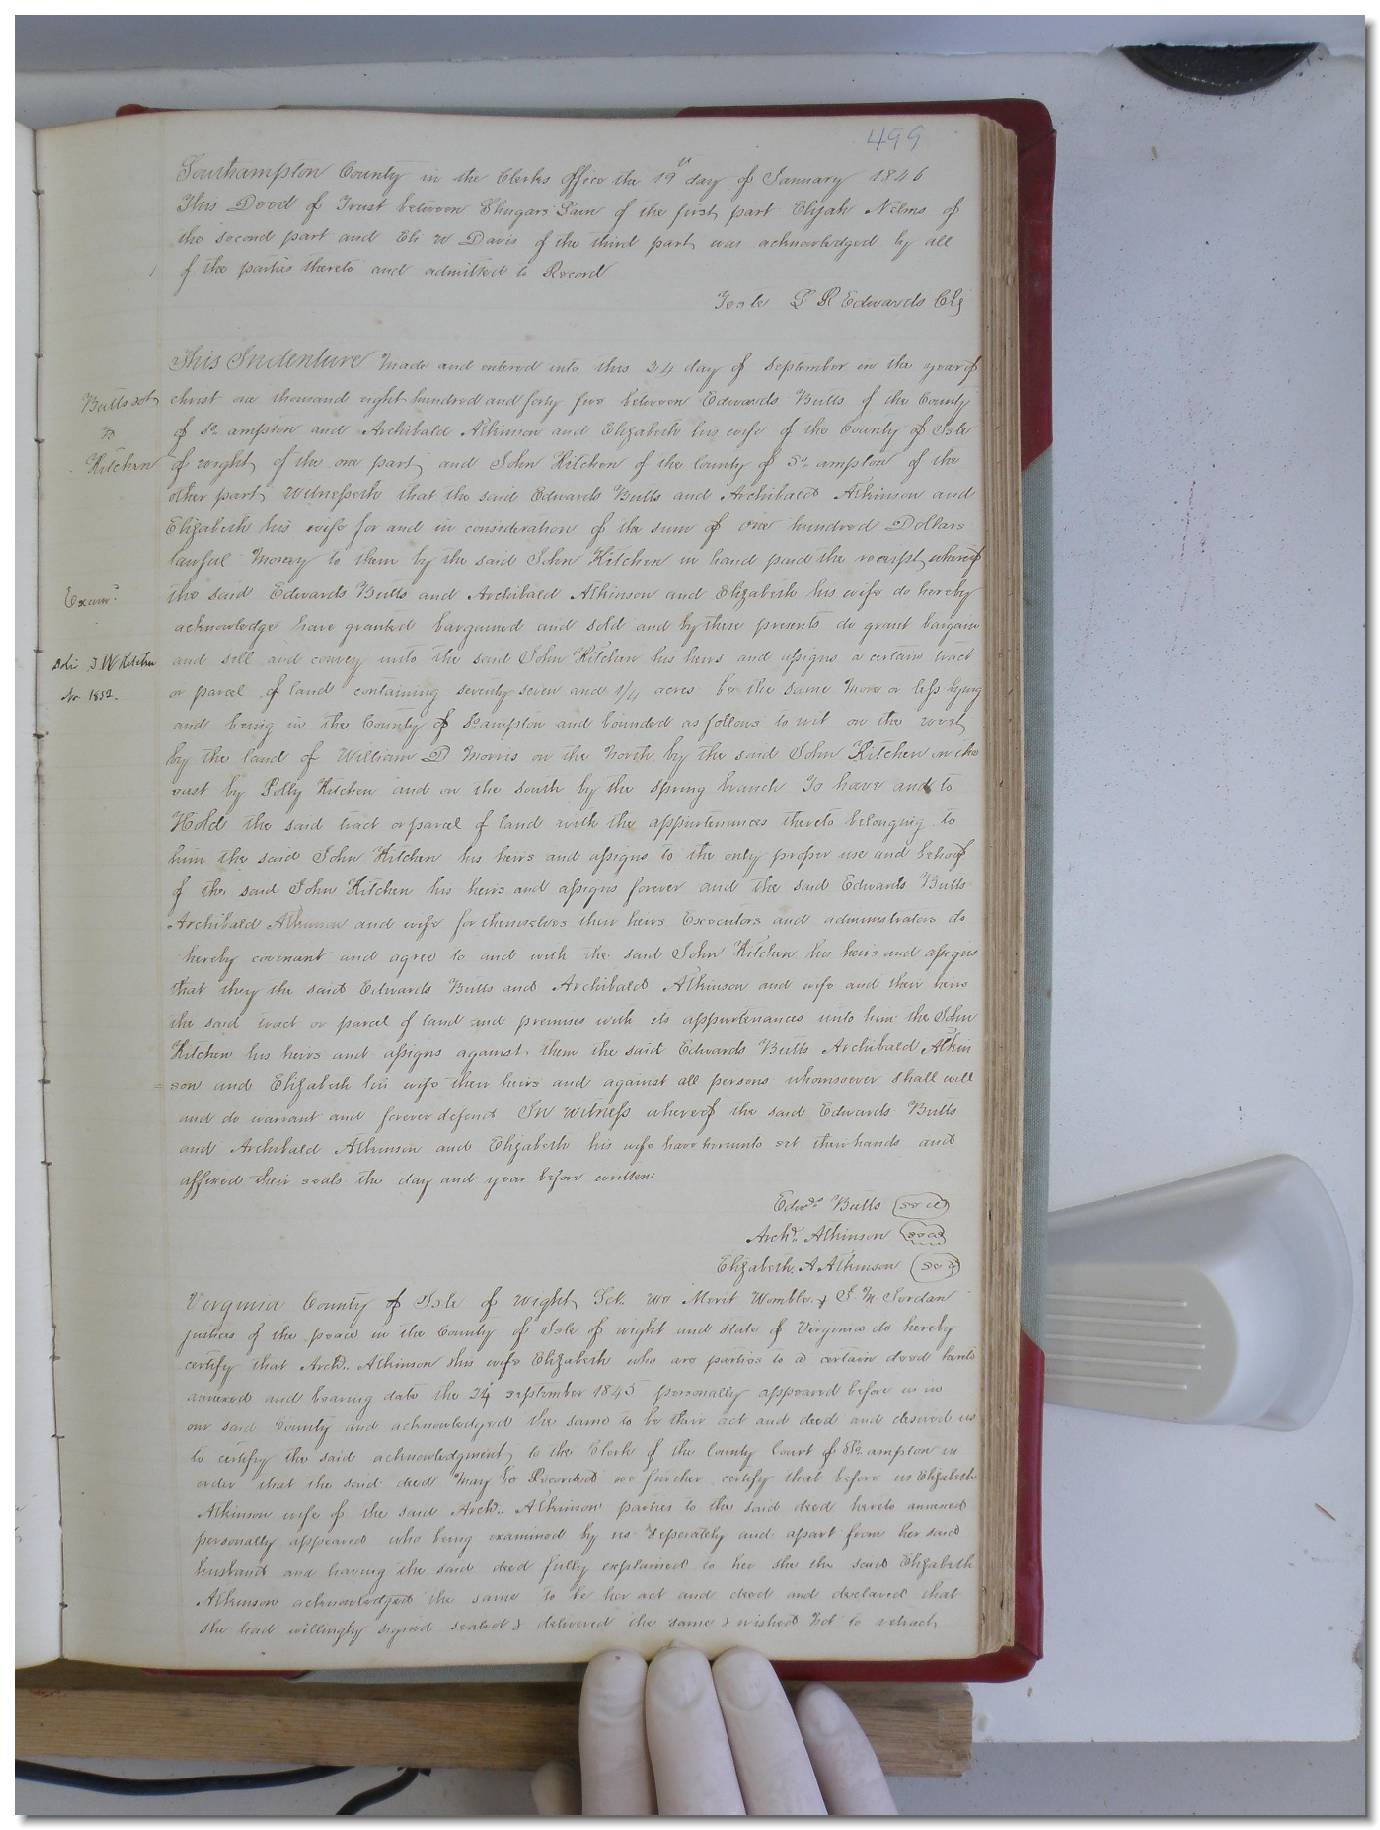 499
Southampton County in the Clerks office the 19th day of January 1846
This Deed of Trust between Shugars Lain of the first part Elijah Nelms of
the second part and Eli W Davis of the third part was acknowledged by all
of the parties thereto and admitted to Record
Teste L R Edwards Clk
This Indenture made and entered into this 24 day of September in the year of
Butts &ct
christ one thousand eight hundred and forty five between Edwards Butts of the County
To
of So ampton and Archibald Atkinson and Elizabeth his wife of the County of Isle
Kitchen
of wight of the one part and John Kitchen of the County of So ampton of the
other part Witnesseth that the said Edwards Butts and Archibald Atkinson and
Elizabeth his wife for and in consideration of the sum of one hundred Dollars
lawful money to them by the said John Kitchen in hand paid the receipt whereof
Examd
the said Edwards Butts and Archibald Atkinson and Elizabeth his wife do hereby
acknowledge have granted bargained and sold and by these presents do grant bargain
deld J W Kitchen
and sell and convey unto the said John Kitchen his heirs and assigns a certain tract
Nr 1852.
or parcel of land containing seventy seven and 1/4 acres be the same more or less lying
and being in the County of So ampton and bounded as follows to wit on the west
by the land of William D Morris on the North by the said John Kitchen on the
east by Polly Kitchen and on the south by the spring branch To have and to
Hold the said tract or parcel of land with the appurtenances thereto belonging to
him the said John Kitchen his heirs and assigns to the only proper use and behoof
of the said John Kitchen his heirs and assigns forever and the said Edwards Butts
Archibald Atkinson and wife for themselves their heirs Executors and administrators do
hereby covenant and agree to and with the said John Kitchen his heirs and assigns
that they the said Edwards Butts and Archibald Atkinson and wife and their heirs
the said tract or parcel of land and premises with its appurtenances unto him the John
Kitchen his heirs and assigns against them the said Edwards Butts Archibald Atkin
=son and Elizabeth his wife their heirs and against all persons whomsoever shall will
and do warrant and forever defend In witness whereof the said Edwards Butts
and Archibald Atkinson and Elizabeth his wife have hereunto set their hands and
affixed their seals the day and year before written.
Edwds Butts (seal)
Archd. Atkinson (seal)
Elizabeth A Atkinson (seal)
Virginia County of Isle of wight Sct. we Merit Womble & J. M. Jordan
justices of the peace in the County of Isle of wight and state of Virginia do hereby
certify that Archd. Atkinson & his wife Elizabeth who are parties to a certain deed hereto
annexed and bearing date the 24 september 1845 personally appeared before us in
our said County and acknowledged the same to be their act and deed and desired us
to certify the said acknowledgment to the Clerk of the County Court of So. ampton in
order that the said deed may be Recorded we further certify that before us Elizabeth
Atkinson wife of the said Archd. Atkinson parties to the said deed hereto annexed
personally appeared who being examined by us seperately and apart from her said
husband and having the said deed fully explained to her she the said Elizabeth
Atkinson acknowledged the same to be her act and deed and declared that
she had willingly signed sealed & delivered the same & wished not to retract